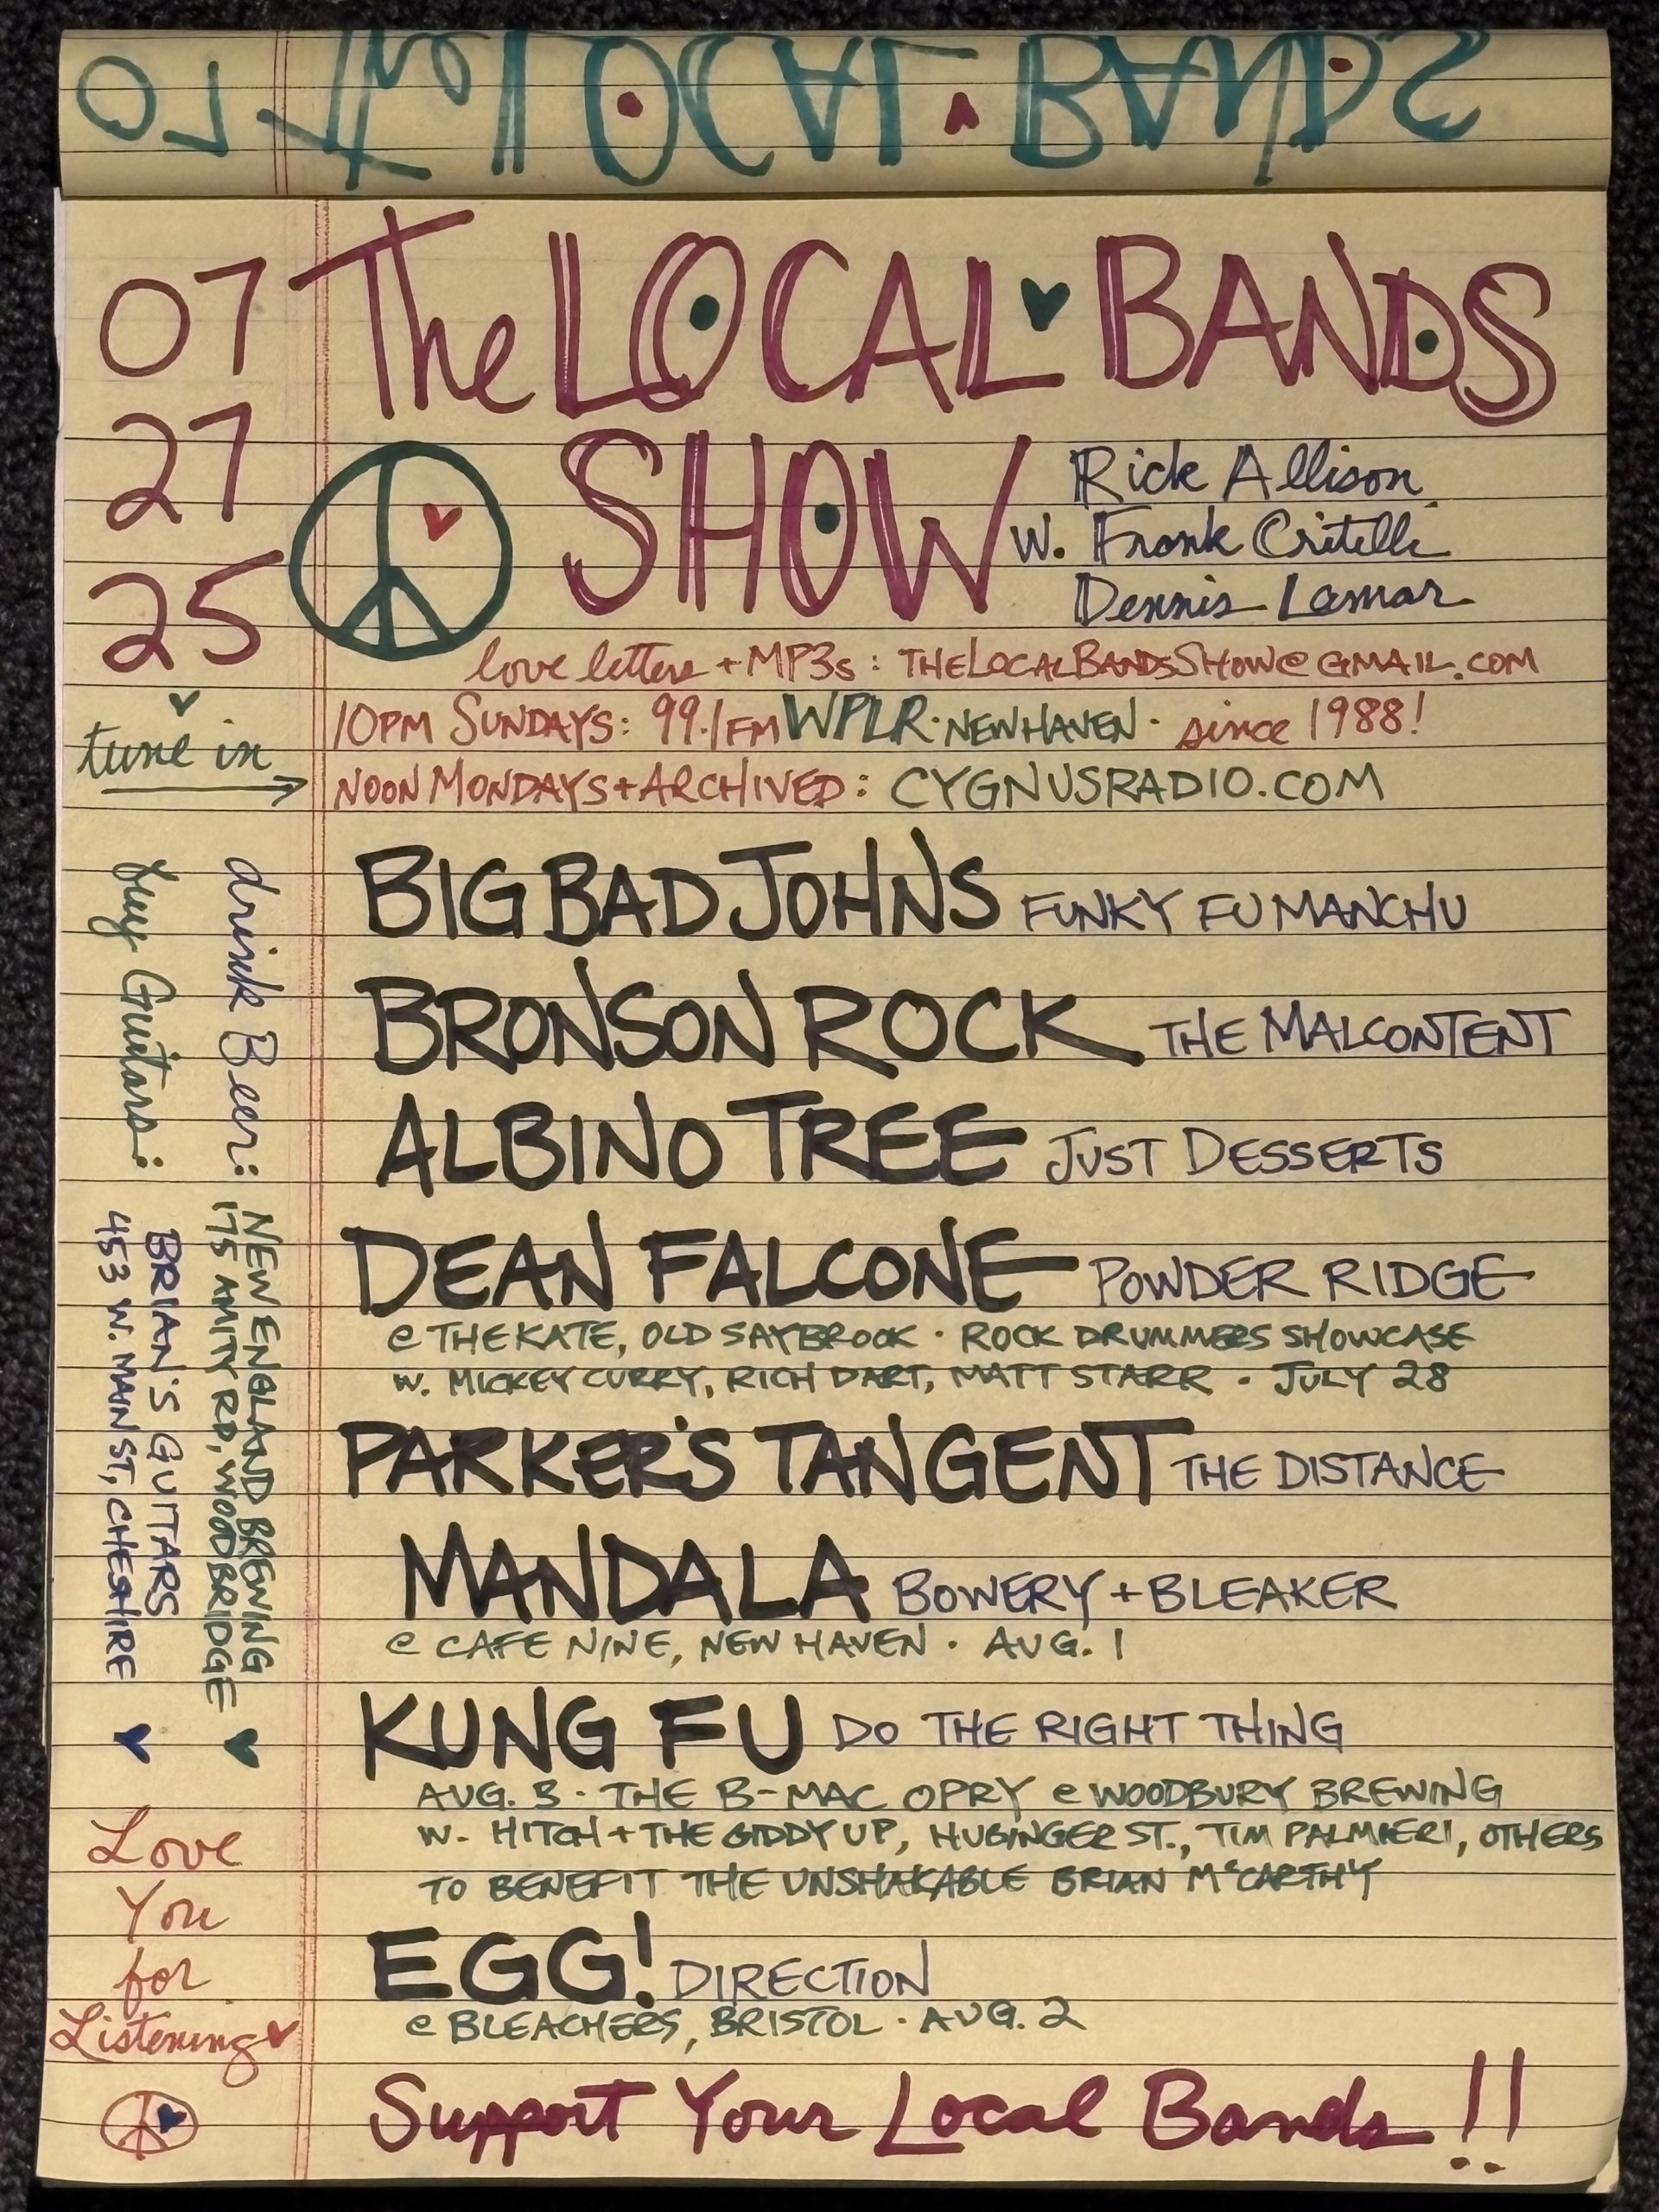 07 The LOCAL BANDS
07
27
25
The LOCAL BANDS
SHOW
Rick Allison
w. Frank Critelli
Dennis Lamar
love letters + MP3s: THELOCALBANDSSHOW@GMAIL.COM
10PM SUNDAYS: 99.1FM WPLR · NEW HAVEN · since 1988!
tune in
NOON MONDAYS + ARCHIVED: CYGNUSRADIO.COM
BIG BAD JOHNS FUNKY FU MANCHU
BRONSON ROCK THE MALCONTENT
ALBINO TREE JUST DESSERTS
DEAN FALCONE POWDER RIDGE
@ THE KATE, OLD SAYBROOK · ROCK DRUMMERS SHOWCASE
w. MICKEY CURRY, RICH DART, MATT STARR · JULY 28
PARKER'S TANGENT THE DISTANCE
MANDALA BOWERY + BLEAKER
@ CAFE NINE, NEW HAVEN · AUG. 1
KUNG FU DO THE RIGHT THING
AUG. 3 · THE B-MAC OPRY @ WOODBURY BREWING
w. HITCH + THE GIDDYUP, HUBINGER ST., TIM PALMIERI, OTHERS
TO BENEFIT THE UNSHAKABLE BRIAN McCARTHY
EGG! DIRECTION
@ BLEACHERS, BRISTOL · AUG. 2
Support Your Local Bands!!
drink Beer: NEW ENGLAND BREWING
175 AMITY RD, WOODBRIDGE
buy Guitars: BRIAN'S GUITARS
453 W. MAIN ST, CHESHIRE
Love
You
for
Listening